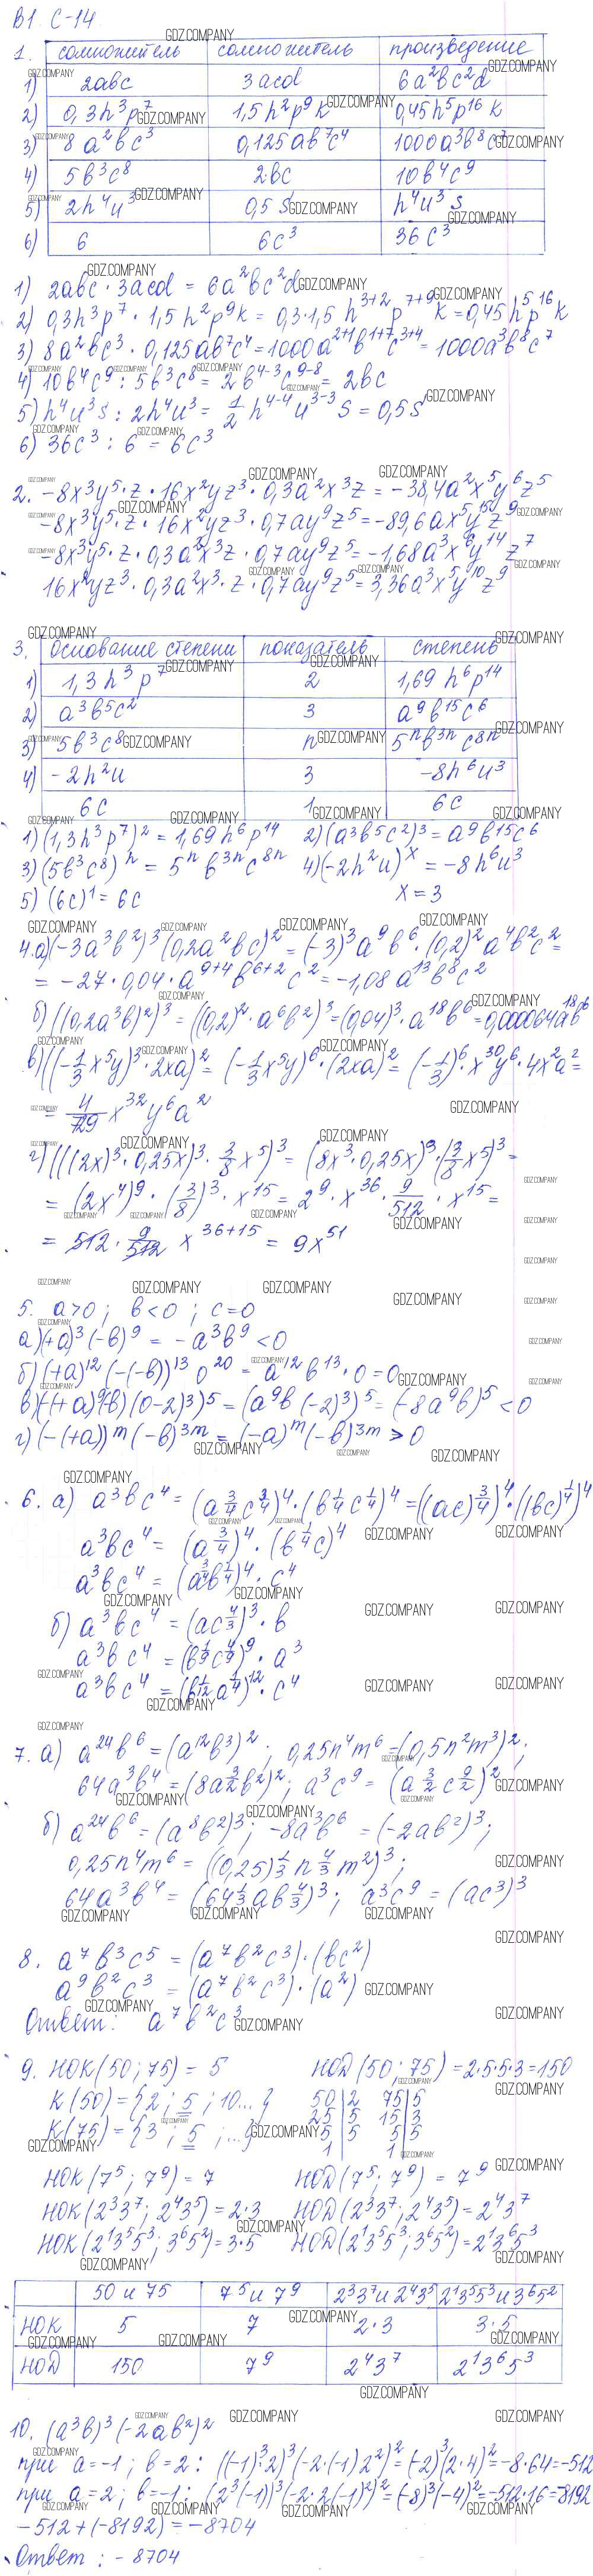 В1 С-14
1. сомножитель сомножитель произведение
1) 2abc 3acd 6a²bc²d
2) 0,3h³p⁷ 1,5h²p⁹k 0,45h⁵p¹⁶k
3) 8a²bc³ 0,125ab⁷c⁴ 1000a³b⁸c⁷
4) 5b³c⁸ 2bc 10b⁴c⁹
5) 2h⁴u³ 0,5s h⁴u³s
6) 6 6c³ 36c³
1) 2abc · 3acd = 6a²bc²d
2) 0,3h³p⁷ · 1,5h²p⁹k = 0,3·1,5 h³⁺²p⁷⁺⁹k = 0,45h⁵p¹⁶k
3) 8a²bc³ · 0,125ab⁷c⁴ = 1000a²⁺¹b¹⁺⁷c³⁺⁴ = 1000a³b⁸c⁷
4) 10b⁴c⁹ : 5b³c⁸ = 2b⁴⁻³c⁹⁻⁸ = 2bc
5) h⁴u³s : 2h⁴u³ = 1/2 h⁴⁻⁴u³⁻³s = 0,5s
6) 36c³ : 6 = 6c³
2. -8x³y⁵·z·16x²yz³·0,3a²x³z = -38,4a²x⁵y⁶z⁵
-8x³y⁵·z·16x²yz³·0,7ay⁹z⁵ = -89,6ax⁵y¹⁵z⁹
-8x³y⁵·z·0,3a²x³z·0,7ay⁹z⁵ = -1,68a³x⁶y¹⁴z⁷
16x²yz³·0,3a²x³·z·0,7ay⁹z⁵ = 3,36a³x⁵y¹⁰z⁹
3. основание степени показатель степень
1) 1,3h³p⁷ 2 1,69h⁶p¹⁴
2) a³b⁵c² 3 a⁹b¹⁵c⁶
3) 5b³c⁸ n 5ⁿb³ⁿc⁸ⁿ
4) -2h²u 3 -8h⁶u³
6c 1 6c
1) (1,3h³p⁷)² = 1,69h⁶p¹⁴ 2) (a³b⁵c²)³ = a⁹b¹⁵c⁶
3) (5b³c⁸)ⁿ = 5ⁿb³ⁿc⁸ⁿ 4) (-2h²u)ˣ = -8h⁶u³
5) (6c)¹ = 6c x = 3
4. а) (-3a³b²)³(0,2a²bc)² = (-3)³a⁹b⁶·(0,2)²a⁴b²c² =
= -27·0,04·a⁹⁺⁴b⁶⁺²c² = -1,08a¹³b⁸c²
б) ((0,2a³b)²)³ = ((0,2)²·a⁶b²)³ = (0,04)³·a¹⁸b⁶ = 0,000064a¹⁸b⁶
в) ((-1/3x⁵y)³·2xa)² = (-1/3x⁵y)⁶·(2xa)² = (-1/3)⁶·x³⁰y⁶·4x²a² =
= 4/729 x³²y⁶a²
г) (((2x)³·0,25x)³·3/8x⁵)³ = (8x³·0,25x)⁹·(3/8x⁵)³ =
= (2x⁴)⁹·(3/8)³·x¹⁵ = 2⁹·x³⁶·9/512·x¹⁵ =
= 512·9/512 x³⁶⁺¹⁵ = 9x⁵¹
5. a>0; b<0; c=0
а) (+a)³(-b)⁹ = -a³b⁹ <0
б) (+a)¹²(-(-b))¹³0²⁰ = a¹²b¹³·0 = 0
в) (-(+a)⁹(-b)(0-2)³)⁵ = (a⁹b(-2)³)⁵ = (-8a⁹b)⁵ <0
г) (-(+a))ᵐ(-b)³ᵐ = (-a)ᵐ(-b)³ᵐ > 0
6. а) a³bc⁴ = (a^3/4 c^3/4)⁴·(b^1/4 c^1/4)⁴ = ((ac)^3/4)⁴·((bc)^1/4)⁴
a³bc⁴ = (a^3/4)⁴·(b^1/4 c)⁴
a³bc⁴ = (a^3/4 b^1/4)⁴·c⁴
б) a³bc⁴ = (ac^4/3)³·b
a³bc⁴ = (b^1/9 c^4/9)⁹·a³
a³bc⁴ = (b^1/12 a^1/4)¹²·c⁴
7. а) a²⁴b⁶ = (a¹²b³)²; 0,25n⁴m⁶ = (0,5n²m³)²;
64a³b⁴ = (8a^3/2 b²)²; a³c⁹ = (a^3/2 c^9/2)²
б) a²⁴b⁶ = (a⁸b²)³; -8a³b⁶ = (-2ab²)³;
0,25n⁴m⁶ = ((0,25)^1/3 n^4/3 m²)³;
64a³b⁴ = (64^1/3 ab^4/3)³; a³c⁹ = (ac³)³
8. a⁷b³c⁵ = (a⁷b²c³)·(bc²)
a⁹b²c³ = (a⁷b²c³)·(a²)
Ответ: a⁷b²c³
9. НОК(50; 75) = 5 НОД(50; 75) = 2·5·5·3 = 150
К(50) = {2; 5; 10...} 50|2 75|5
К(75) = {3; 5; ...} 25|5 15|3
5|5 5|5
1| 1|
НОК(7⁵; 7⁹) = 7 НОД(7⁵; 7⁹) = 7⁹
НОК(2³3⁷; 2⁴3⁵) = 2·3 НОД(2³3⁷; 2⁴3⁵) = 2⁴3⁷
НОК(2¹3⁵5³; 3⁶5²) = 3·5 НОД(2¹3⁵5³; 3⁶5²) = 2¹3⁶5³
50 и 75 7⁵ и 7⁹ 2³3⁷ и 2⁴3⁵ 2¹3⁵5³ и 3⁶5²
НОК 5 7 2·3 3·5
НОД 150 7⁹ 2⁴3⁷ 2¹3⁶5³
10. (a³b)³(-2ab²)²
при a=-1; b=2: ((-1)³·2)³(-2·(-1)2²)² = (-2)³(2·4)² = -8·64 = -512
при a=2; b=-1: (2³(-1))³(-2·2(-1)²)² = (-8)³(-4)² = -512·16 = -8192
-512+(-8192) = -8704
Ответ: -8704